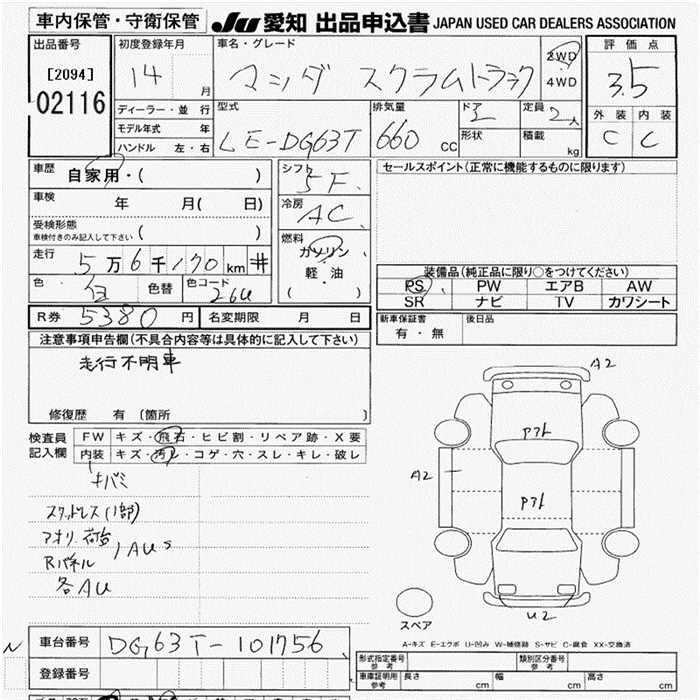 車内保管・守衛保管 JU 愛知 出品申込書 JAPAN USED CAR DEALERS ASSOCIATION
出品番号
[2094]
02116
初度登録年月
14 月
車名・グレード
マツダ スクラムトラック
2WD
4WD
評価点
3.5
ディーラー・並行
モデル年式 年
ハンドル 左・右
型式
LE-DG63T
排気量
660 cc
ドア
2
形状
定員
2人
積載 kg
外装 内装
C C
車歴
自家用・( )
車検 年 月( 日)
受検形態
車検付きのみ記入して下さい ( )
走行 5万6千170km #
色 白 色替 色コード 26U
シフト
5F
冷房
AC
燃料
ガソリン
軽・油
・( )
セールスポイント(正常に機能するものに限ります)
装備品(純正品に限り○をつけてください)
PS PW エアB AW
SR ナビ TV カワシート
R券 5380円 名変期限 月 日
新車保証書
有・無
後日品
注意事項申告欄(不具合内容等は具体的に記入して下さい)
走行不明車
修復歴 有 〔箇所 〕
検査員
記入欄
FW キズ・飛石・ヒビ割・リペア跡・X要
内装 キズ・汚レ・コゲ・穴・スレ・キレ・破レ
キバミ
スタットレス(1部)
アオリ、荷台
Rパネル
AUS
各AU
A2
Pアト
A2
Pアト
U2
スペア
A-キズ E-エクボ U-凹み W-補修跡 S-サビ C-腐食 XX-交換済
N
車台番号 DG63T-101756
登録番号
形式指定番号
参考
類別区分番号
参考
車庫証明用
参考
長さ cm 幅 cm 高さ cm